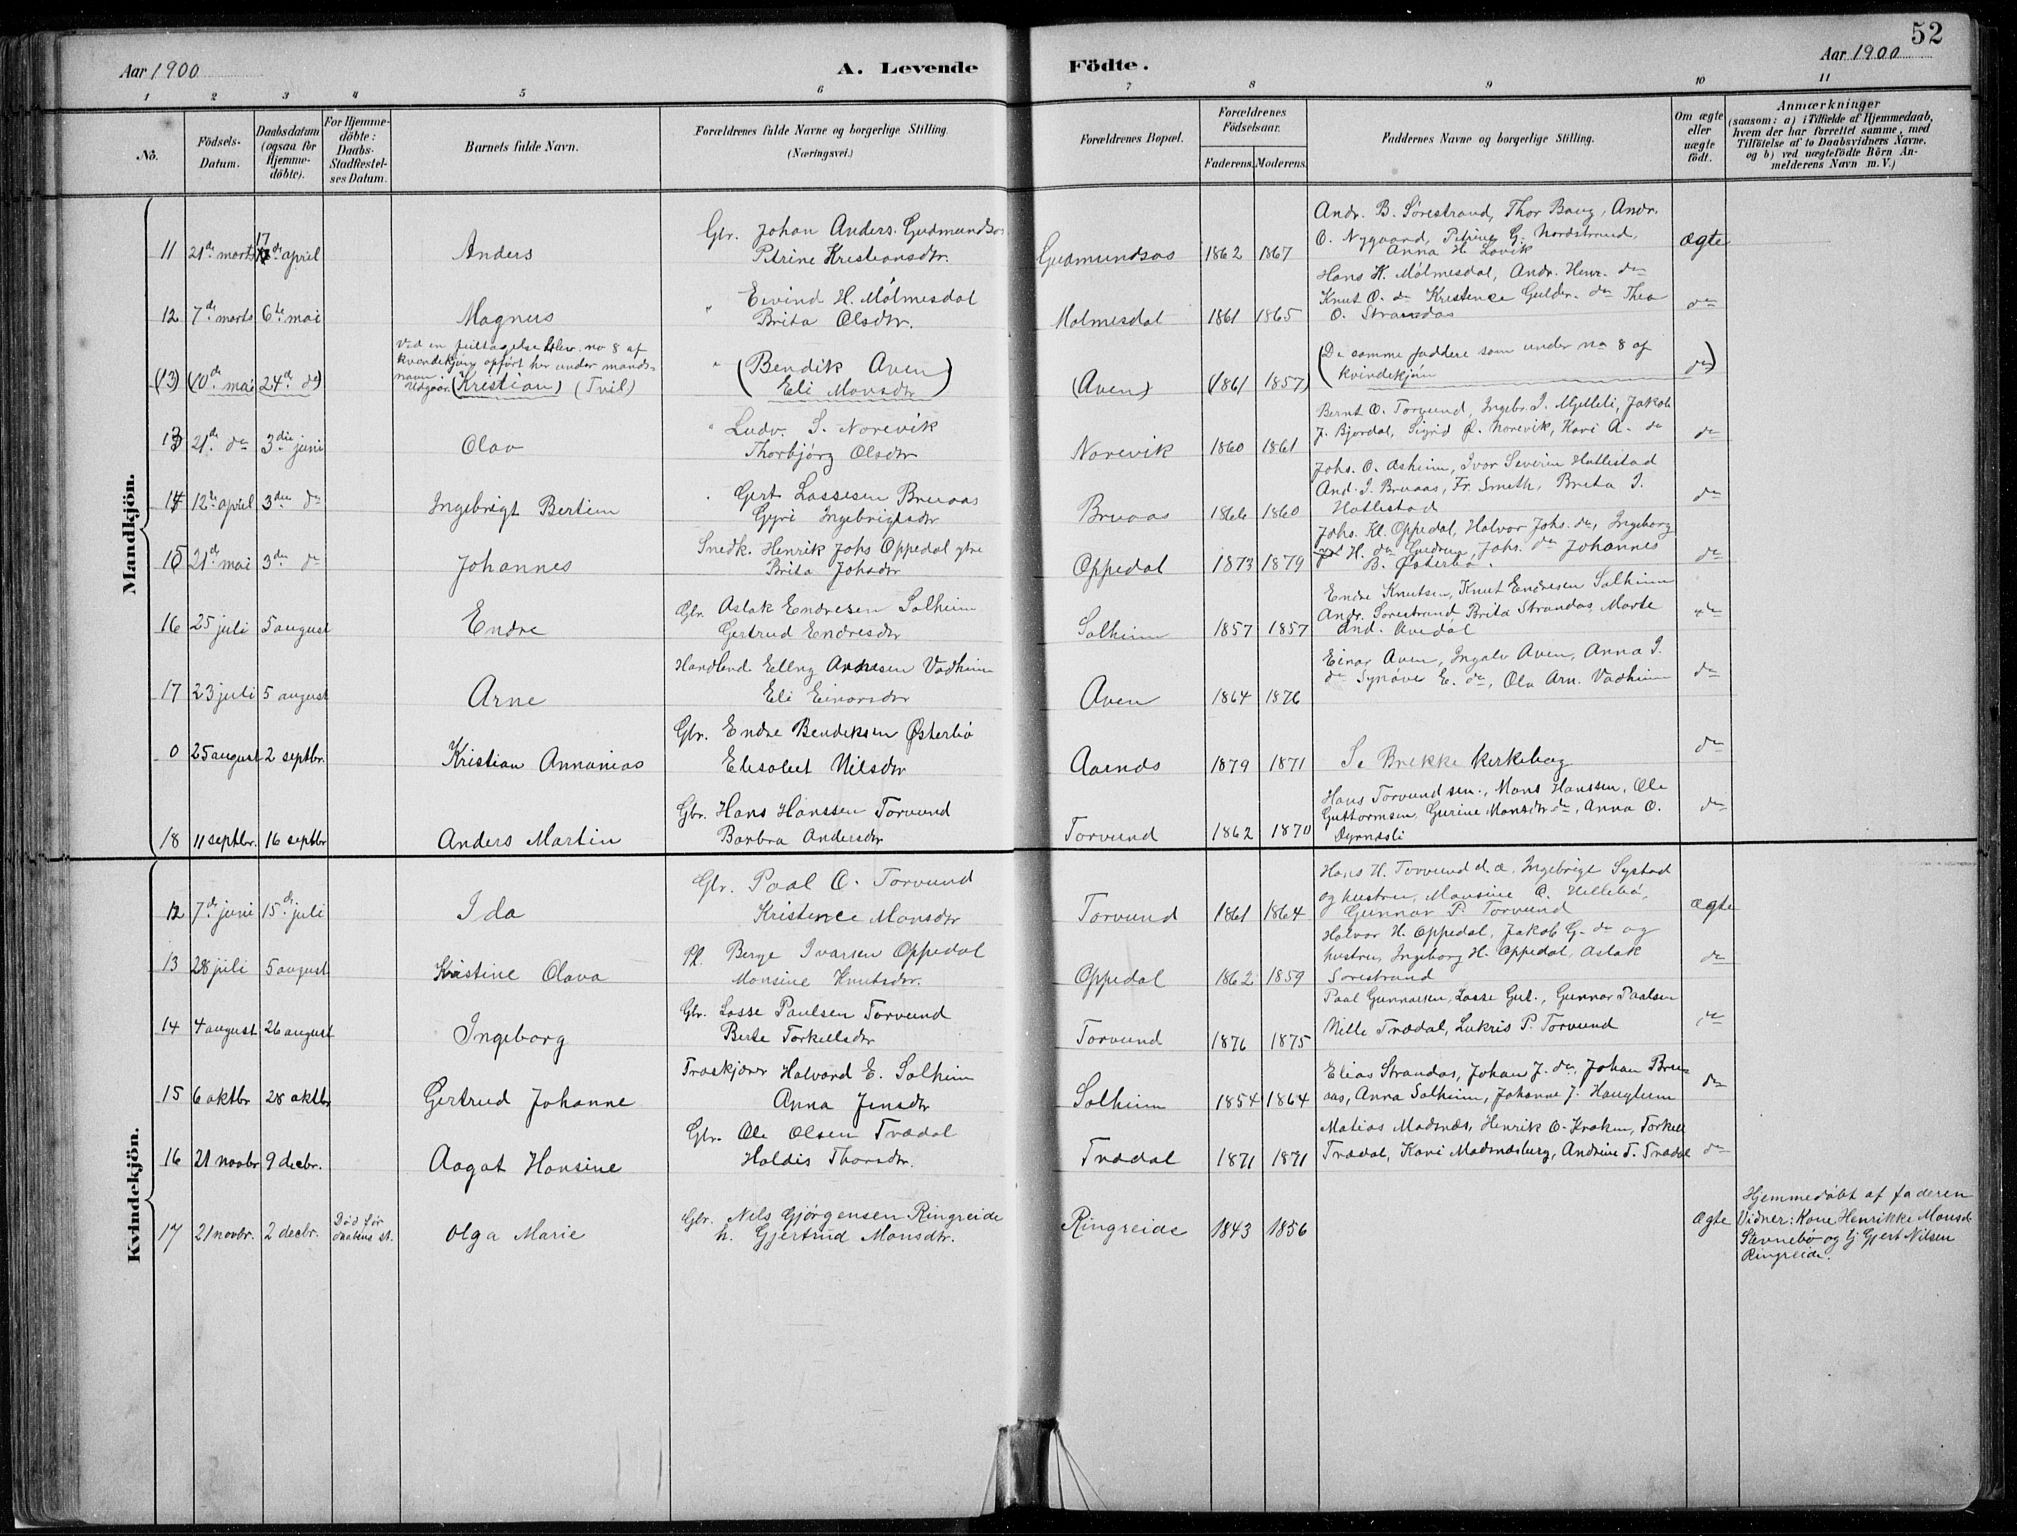 52
Aar 1900
A. Levende
Födte.
Aar 1900
1 2 3 4 5 6 7 8 9 10 11
No.
Födsels-
Datum.
Daabsdatum
(ogsaa for
Hjemme-
döbte).
For Hjemme-
döbte:
Daabs-
Stadfæstel-
ses Datum.
Barnets fulde Navn.
Forældrenes fulde Navne og borgerlige Stilling.
(Næringsvei.)
Forældrenes Bopæl.
Forældrenes
Födselsaar.
Faderens. Moderens.
Faddernes Navne og borgerlige Stilling.
Om ægte
eller
uægte
födt.
Anmærkninger
(saasom: a) i Tilfælde af Hjemmedaab,
hvem der har forrettet samme, med
Tilföielse af to Daabsvidners Navne,
og b) ved uægtefödte Börn An-
melderens Navn m. V.)
Mandkjön.
11 21de marts 17de april Anders
Gbr. Johan Anders. Gudmundsos
Petrine Kristiansdtr.
Gudmundsos 1862 1867
Andr. B. Sørestrand, Thor Baug, Andr.
O. Nygaard, Petrine G. Nordstrand,
Anna H. Løvik
ægte
12 7de marts 6te mai Magnus
" Eivind H. Mølmesdal
Brita Olsdtr.
Mølmesdal 1861 1865
Hans K. Mølmesdal, Andr. Henr. do
Knut O. do Kristence Guldr. do Thea
O. Strandos
do
(13) (10de mai 24de do)
Ved en feiltagelse blev no 8 af
kvindekjøn opført her under mands-
navn
Udgaar (Kristian) (Tvil)
" (Bendik Aven)
Eli Monsdtr
(Aven) (1861 1857)
(De samme faddere som under no 8 af
kvindekjøn
do)
13 21de do 3die juni Olav
" Ludv. S. Norevik
Thorbjørg Olsdtr
Norevik 1860 1861
Bernt O. Torvund, Ingebr. I. Mjelleli, Jakob
J. Bjordal, Sigrid Ø. Norevik, Kari A. do
do
14 12te april 3die do Ingebrigt Bertin
" Gert Lassesen Bruaas
Gyri Ingebrigtsdtr
Bruaas 1866 1860
Johs. O. Asheim, Ivar Severin Hatlestad
And. I. Bruaas, Fr. Smith, Brita I.
Hatlestad
do
15 21de mai 3die do Johannes
Snedk. Henrik Johs Oppedal
Brita Johsdtr
Oppedal 1873 1879
Johs. Kl. Oppedal, Halvor Johs. do, Ingeborg
H. do Gudrun, Johs. do Johannes
B. Østerbø.
do
16 25 juli 5 august Endre
Gbr. Aslak Endresen Solheim
Gertrud Endresdtr
Solheim 1857 1857
Endre Knutsen, Knut Endresen Solheim
Andr. Sørestrand Brita Strandos, Marte
And. Avedal
do
17 23 juli 5 august Arne
Handlend Elling Arnesen Vadheim
Eli Einarsdtr
Aven 1864 1876
Einar Aven, Ingalv Aven, Anna I.
do Synøve E. do, Ola Arn. Vadheim
do
0 25 august 2 septbr. Kristian Annanias
Gbr. Endre Bendiksen Østerbø
Elisabet Nilsdtr
Aarnds 1879 1871
Se Brekke kirkebog
do
18 11 septbr. 16 septbr Anders Martin
Gbr. Hans Hanssen Torvund
Barbra Andersdtr
Torvund 1862 1870
Hans Torvundsen., Mons Hanssen, Ole
Guttormsen, Gurine Monsdtr do, Anna O.
Dyrnesli
do
Kvindekjön.
12 7de juni 15de juli Ida
Gbr. Paal O. Torvund
Kristence Monsdtr
Torvund 1861 1864
Hans H. Torvund d. æ. Ingebrigt Systad
og hustru, Monsine O. Hillebø,
Gunnar P. Torvund
ægte
13 28 juli 5 august Kristine Olava
Pl. Berge Ivarsen Oppedal
Monsine Knutsdtr.
Oppedal 1862 1859
Halvor H. Oppedal, Jakob G. do og
hustru, Ingeborg H. Oppedal, Aslak
Sørestrand
do
14 4 august 26 august Ingeborg
Gbr. Lasse Paulsen Torvund
Berte Torkellsdtr
Torvund 1876 1875
Paal Gunnarsen, Lasse Gut., Gunnar Paalsen
Nille Trædal, Lukris P. Torvund
do
15 6 oktbr 28 oktbr Gertrud Johanne
Træskjærer Halvard E. Solheim
Anna Jensdtr
Solheim 1854 1864
Elias Strandos, Johan J. do, Johan Bru-
aas, Anna Solheim, Johanne J. Haugland
do
16 21 novbr 9 decbr. Aagot Hansine
Gbr. Ole Olsen Trædal
Haldis Thorsdtr.
Trædal 1871 1871
Matias Madsnæs, Henrik O. Kraken, Torkell
Trædal, Kari Madsnæsberg, Andrine T. Trædal
do
17 21 novbr. 2 decbr.
Død før
daabens st.
Olga Marie
Gbr. Nils Gjørgensen Ringreide
h. Gjertrud Monsdtr.
Ringreide 1843 1856
Ægte
Hjemmedøbt af faderen
Vidner: Kone Henrikke Monsd.
Stevnebø og tj Gjert Nilsen
Ringreide.